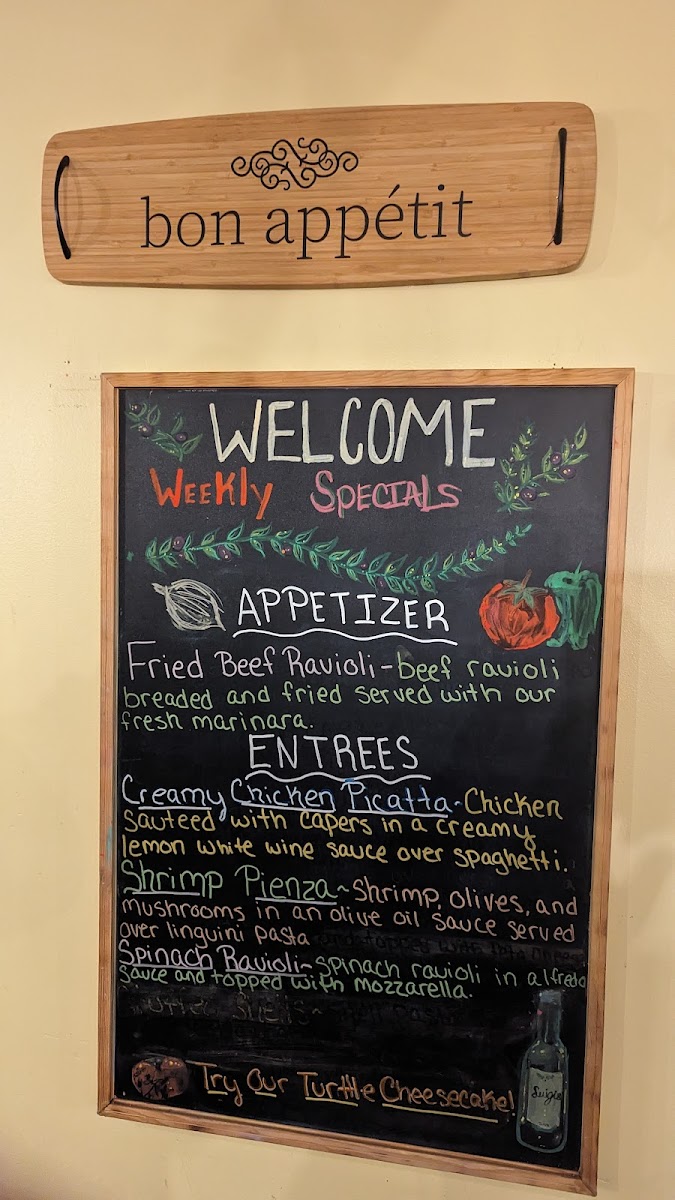 bon appétit
WELCOME
WEEKly SPECIALS
APPETIZER
Fried Beef Ravioli-beef ravioli
breaded and fried served with our
fresh marinara.
ENTREES
Creamy Chicken Picatta-Chicken
Sauteed with capers in a creamy
lemon white wine sauce over spaghetti.
Shrimp Pienza~shrimp, olives, and
mushrooms in an olive oil sauce served
over linguini pasta
Spinach Ravioli-spinach ravioli in alfredo
sauce and topped with mozzarella.
Try Our Turttle Cheesecake!